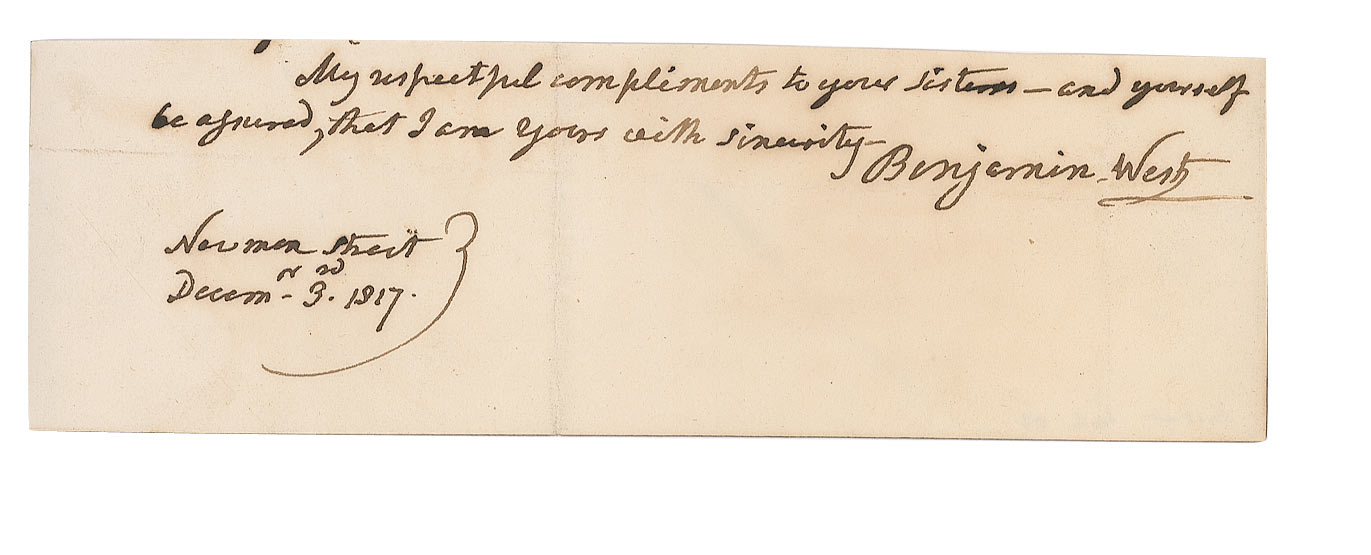 My respectful compliments to your sisters — and yourself
be assured, that I am yours with sincerity —
Benjamin West
Newman Street
Decemr. 3rd. 1817.